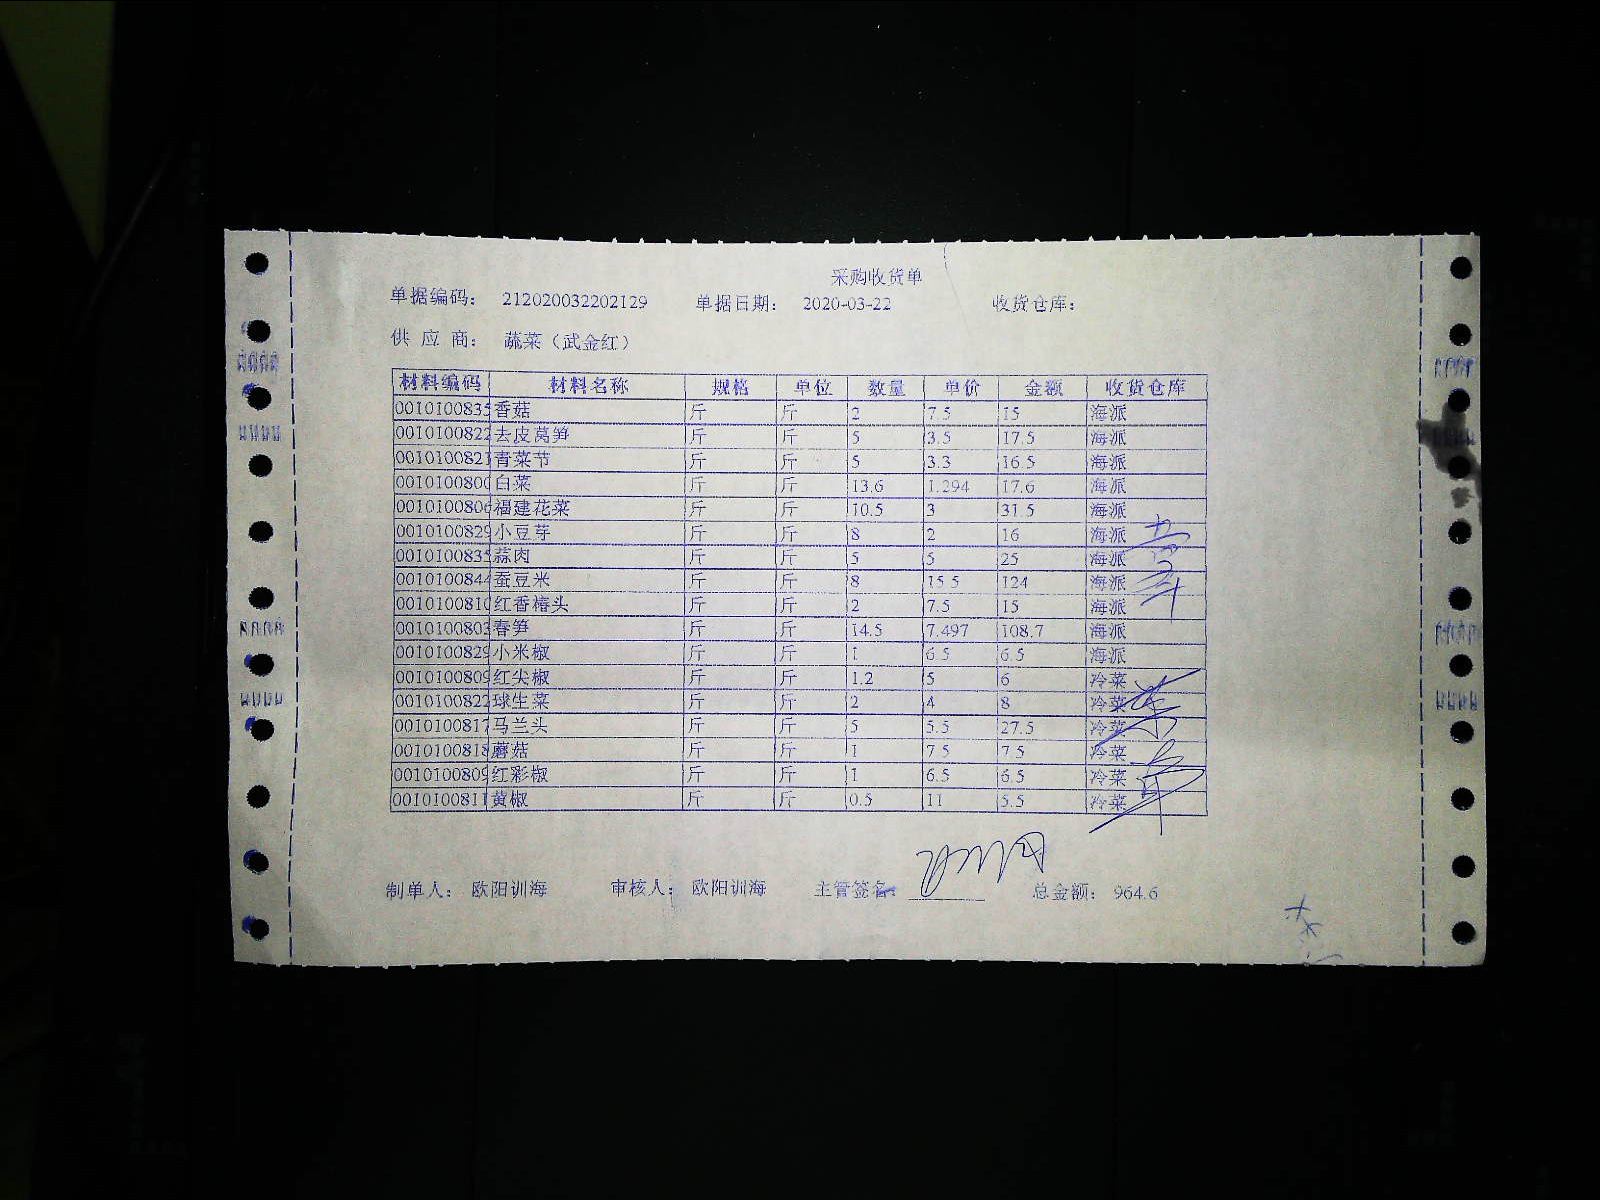 采购收货单
单据编码： 212020032202129 单据日期： 2020-03-22 收货仓库：
供 应 商： 蔬菜（武金红）
材料编码 材料名称 规格 单位 数量 单价 金额 收货仓库
0010100835 香菇 斤 斤 2 7.5 15 海派
0010100822 去皮莴笋 斤 斤 5 3.5 17.5 海派
0010100821 青菜节 斤 斤 5 3.3 16.5 海派
0010100800 白菜 斤 斤 13.6 1.294 17.6 海派
0010100806 福建花菜 斤 斤 10.5 3 31.5 海派
0010100829 小豆芽 斤 斤 8 2 16 海派
0010100835 蒜肉 斤 斤 5 5 25 海派
0010100844 蚕豆米 斤 斤 8 15.5 124 海派
0010100810 红香椿头 斤 斤 2 7.5 15 海派
0010100803 春笋 斤 斤 14.5 7.497 108.7 海派
0010100829 小米椒 斤 斤 1 6.5 6.5 海派
0010100809 红尖椒 斤 斤 1.2 5 6 冷菜
0010100822 球生菜 斤 斤 2 4 8 冷菜
0010100817 马兰头 斤 斤 5 5.5 27.5 冷菜
0010100818 蘑菇 斤 斤 1 7.5 7.5 冷菜
0010100809 红彩椒 斤 斤 1 6.5 6.5 冷菜
0010100811 黄椒 斤 斤 0.5 11 5.5 冷菜
制单人： 欧阳训海 审核人： 欧阳训海 主管签名： 总金额： 964.6